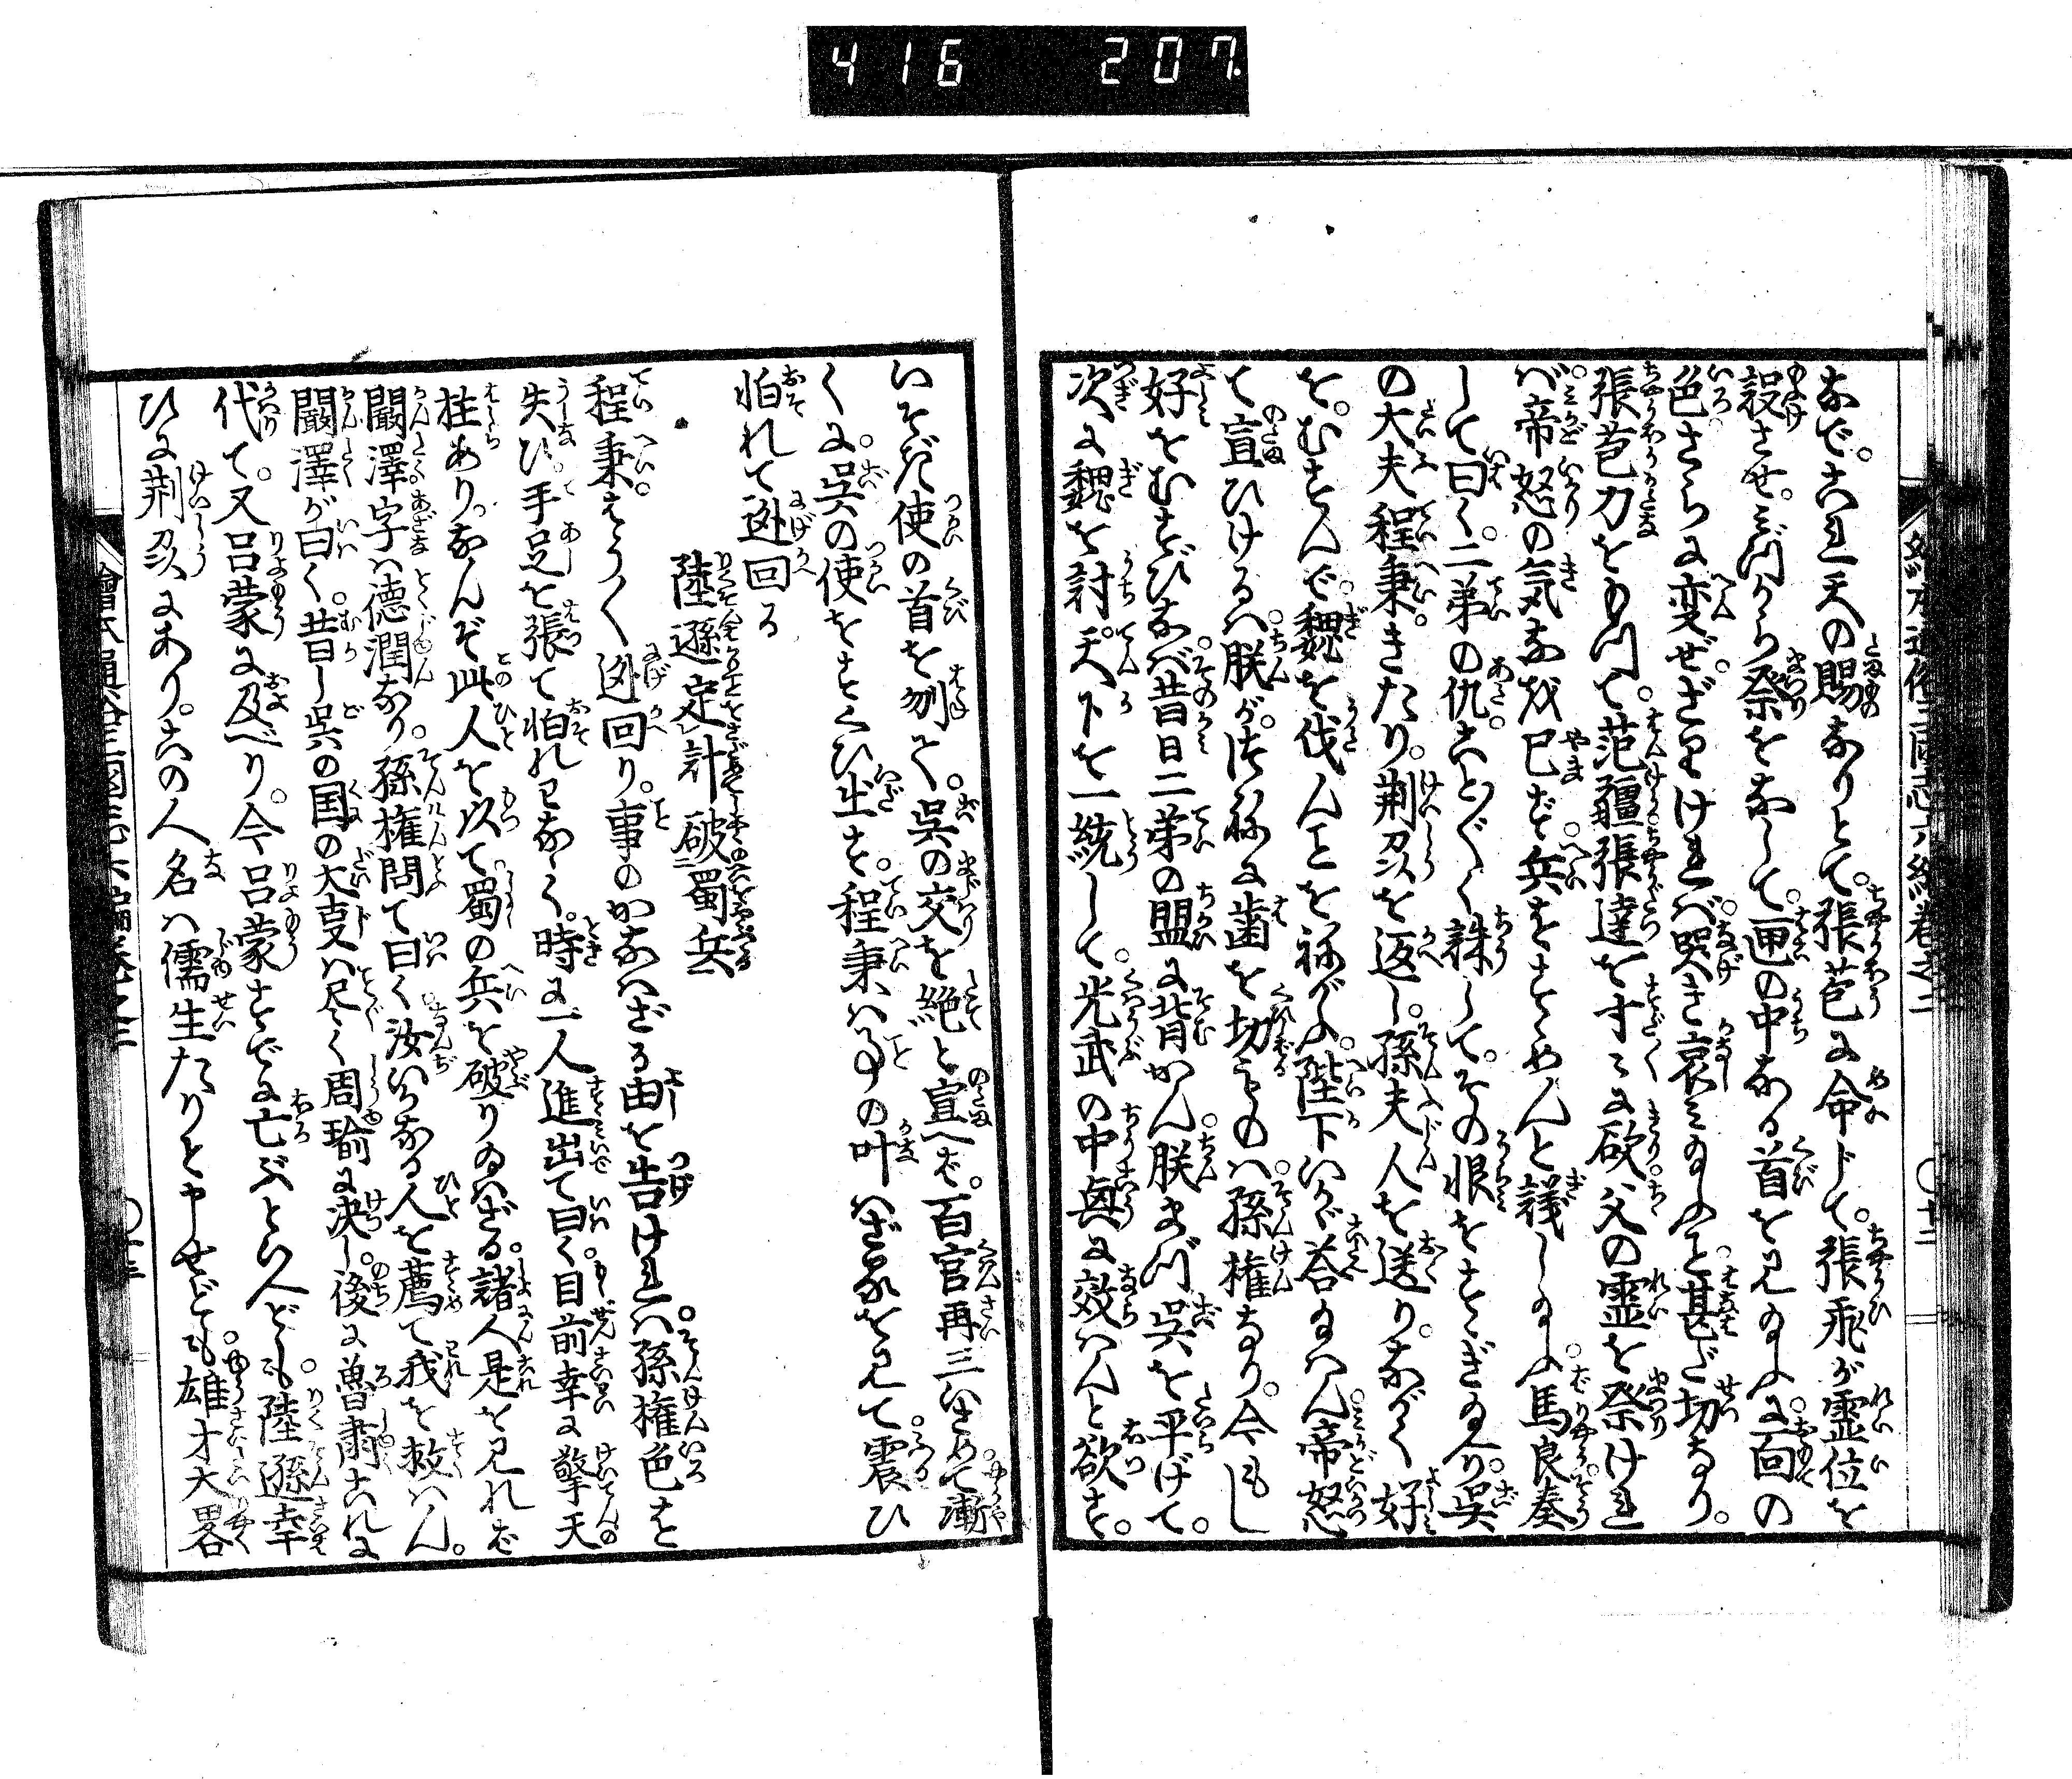 416 207
繪本通俗三國志六編巻之二
なで。これ天の賜なりとて。張苞に命じて。張飛が霊位を
設させ。みづから祭をなして。匣の中なる首を見玉ふに。面の
色さらに変ぜざりければ。哭き哀み玉ふこと。甚だ切なり。
張苞刀をもつて。范疆張達を寸々に砍。父の霊を祭けれ
ば。帝怒の気なを已まず。兵をすゝめんと議し玉ふ。馬良奏
して曰く。二弟の仇。ことごとく誅して。その恨をすゝぎ玉へり。呉
の大夫程秉。きたり。荊州を返し。孫夫人を送り。ながく好
を。むすんで。魏を伐んことを祢がふ。陛下いかゞ答玉はん。帝怒
て宣ひけるは。朕が。つねに歯を切るものは。孫権なり。今もし
好をむすびなば。昔日二弟の盟に背かん。朕まづ呉を平げて。
次に魏を討。天下を一統して。光武の中興に效はんと欲す。
いそぎ使の首を刎て。呉の交を絶と宣へば。百官再三いさめて。漸
くに。呉の使をすくひ出す。程秉は事の叶はざるを見て。震ひ
怕れて逃回る
陸遜定計破蜀兵
程秉。はやく逃回り。事のかなはざる由を告ければ。孫権色を
失ひ。手足を張て怕れ玉なく。時に一人進出て曰く。目前幸に擎天の
柱あり。なんぞ此人を以て。蜀の兵を破り玉はざる。諸人是を見れば
闞澤字は德潤なり。孫権問て曰く。汝いかなる人を薦て我を救はん。
闞澤が曰く。昔し呉の国の大事は尽く周瑜に決し。後に魯粛これに
代て。又呂蒙に及べり。今呂蒙すでに亡ぶといへども。陸遜幸
ひに荊州にあり。この人名は儒生たりと申せども。雄才大畧